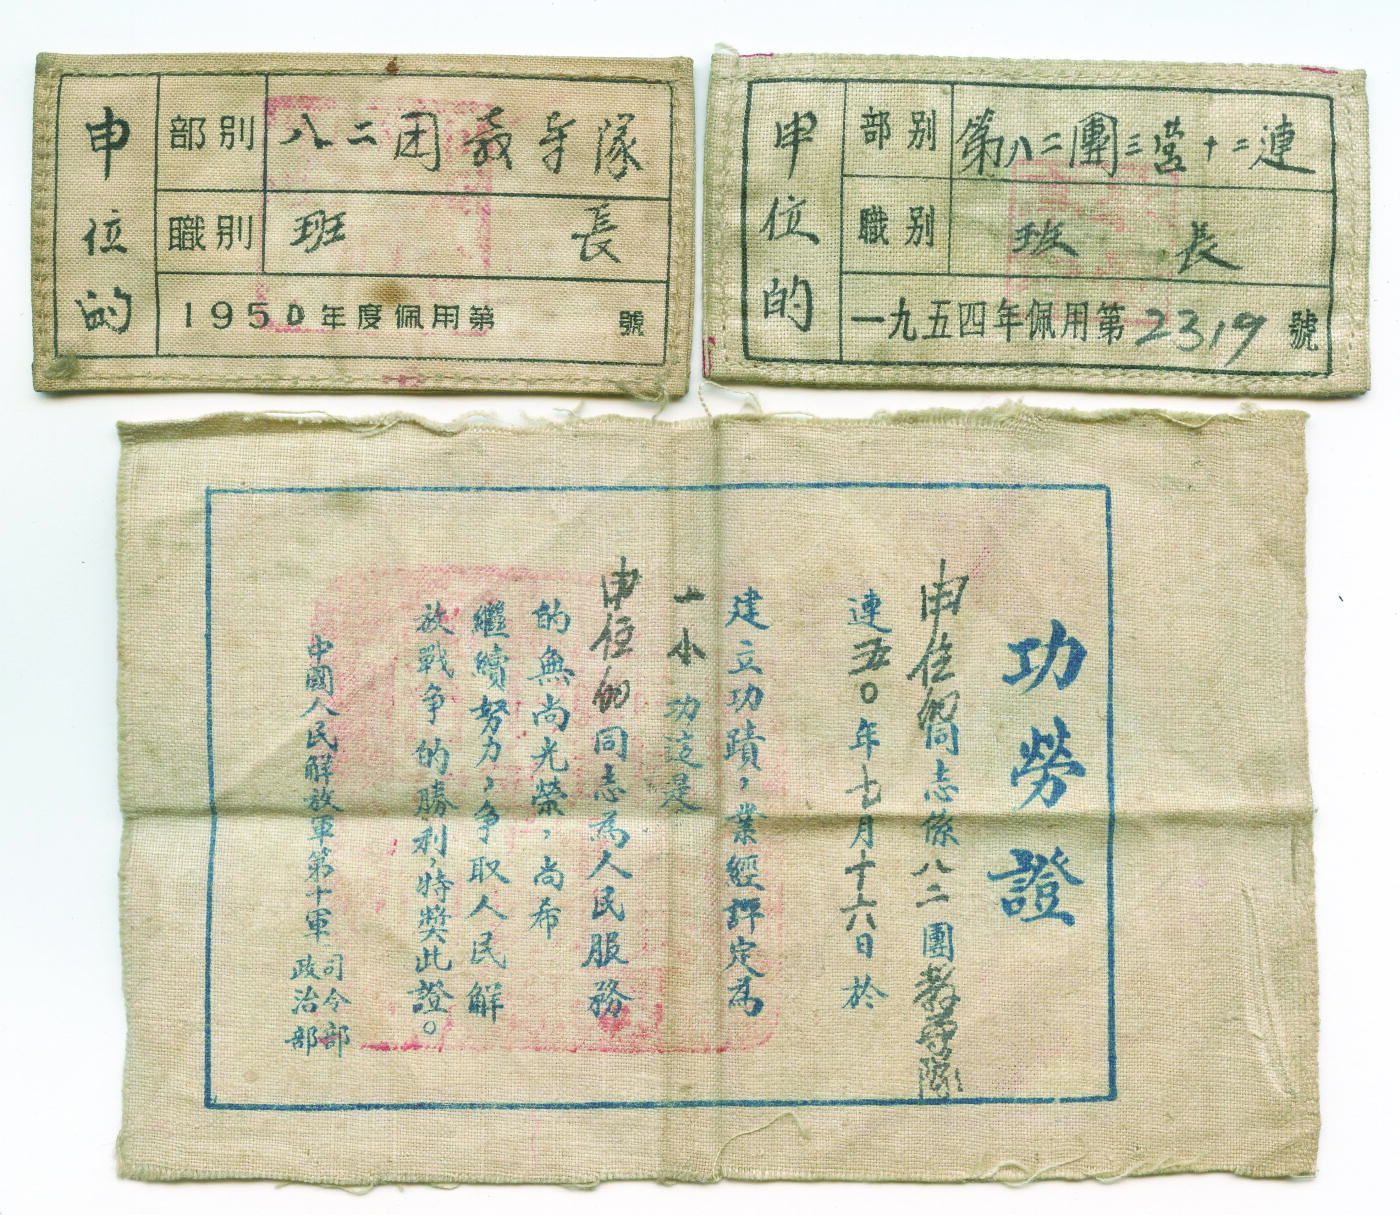 申位的
部别
八二団教导隊
職别
班長
1950年度佩用第 號
申位的
部别
第八二團三营十二連
職别
班長
一九五四年佩用第2319號
功勞證
申位的同志係八二團教导隊
連五〇年七月十六日於
建立功蹟，業經評定為
一小功這是
申位的同志為人民服務
的無尚光榮，尚希
繼續努力，争取人民解
放戰争的勝利，特獎此證。
中國人民解放軍第十軍司令部
政治部